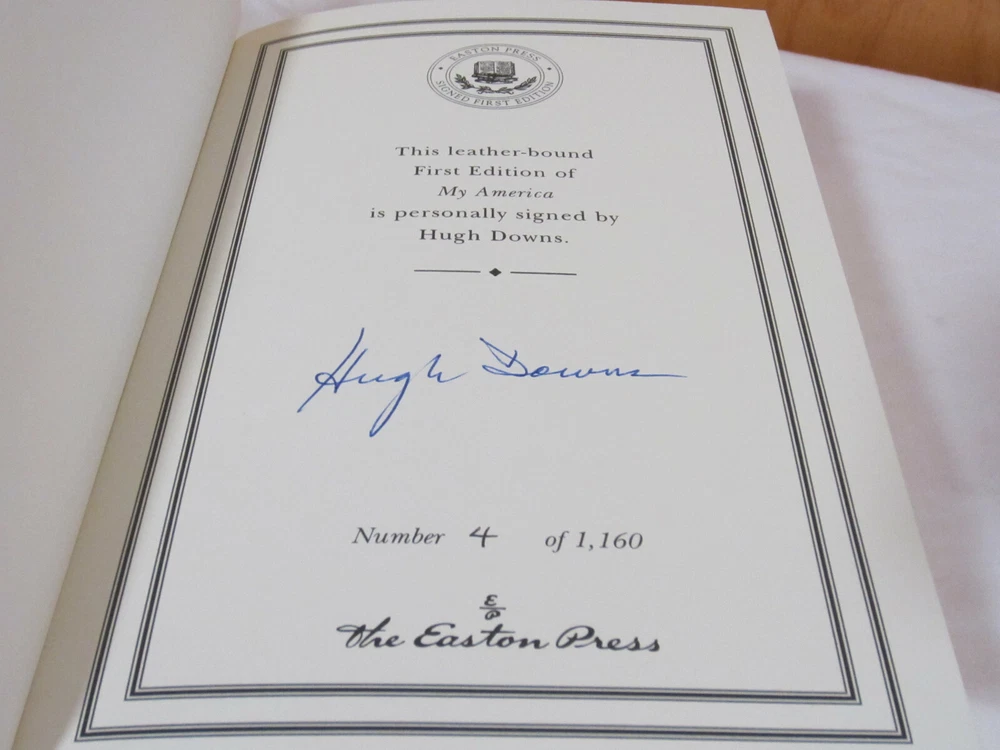 EASTON PRESS
SIGNED FIRST EDITION
This leather-bound
First Edition of
My America
is personally signed by
Hugh Downs.
Hugh Downs
Number 4 of 1,160
E
P
The Easton Press